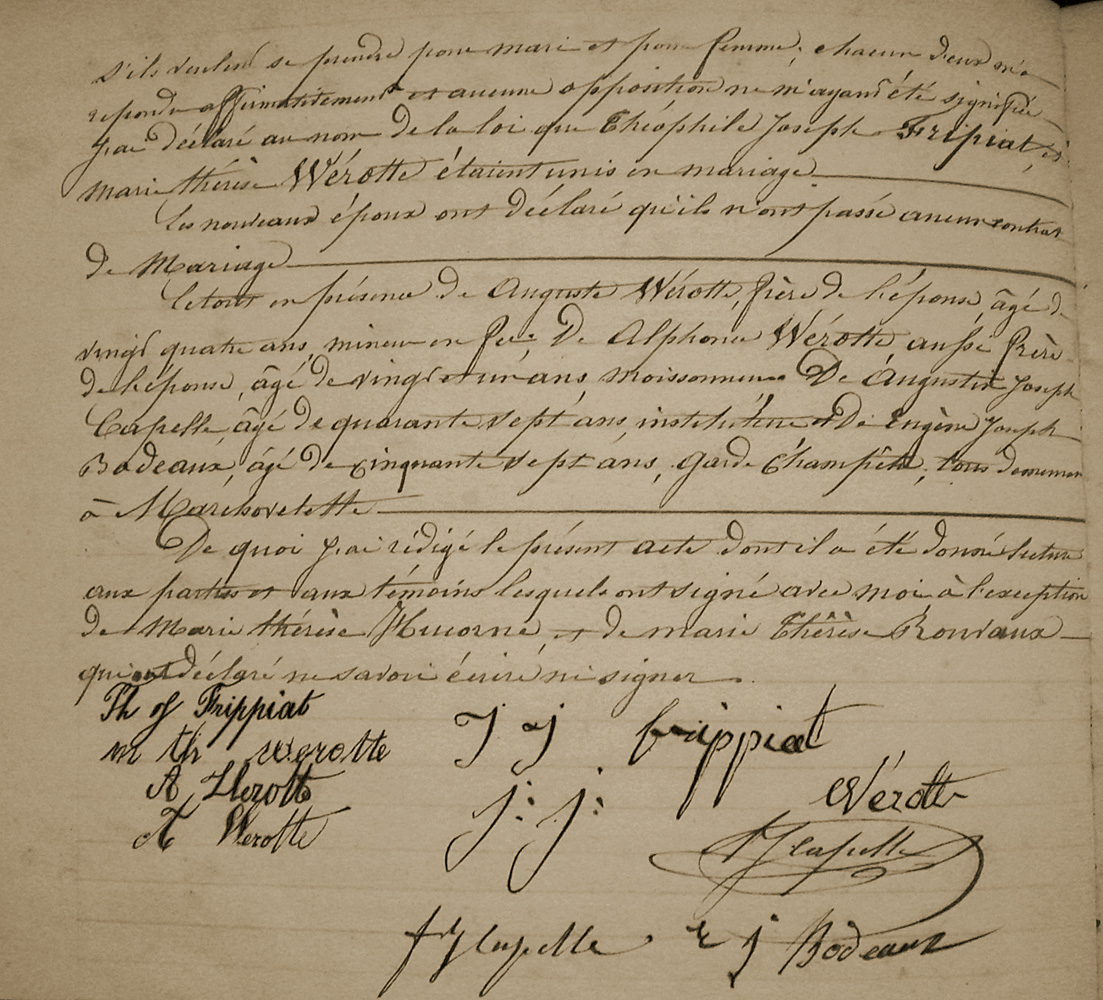 s'ils veulent se prendre pour mari et pour femme, chacun d'eux m'a
repondu affirmativement et aucune opposition ne m'ayant été signifiée
j'ai déclaré au nom de la loi que Théophile Joseph Fripiat, et
marie thérèse Wérotte étaient unis en mariage
Les nouveaux époux ont déclaré qu'ils n'ont passé aucun contrat
de Mariage
Le tout en présence de Auguste Wérotte, frère de l'épouse âgé de
vingt quatre ans, mineur en fer De Alphonse Wérotte aussi frère
de l'épouse, âgé de vingt et un ans moissonneur De Augustin Joseph
Capelle, âgé de quarante sept ans, instituteur et De Eugène Joseph
Bodeaux, âgé de cinquante sept ans, garde Champêtre, tous demeurant
à Marchovelette
De quoi j'ai rédigé le présent acte dont il a été donné lecture
aux parties et aux témoins lesquels ont signé avec moi à l'exception
de Marie thérèse Hucorne et de marie Thérèse Rouvaux
qui ont déclaré ne savoir écrire ni signer.
Th j Frippiat J J frippiat
m th werotte
A Werotte j: j: Wérotte
A Werotte
AJ Capelle
AJ Capelle E j Bodeaux